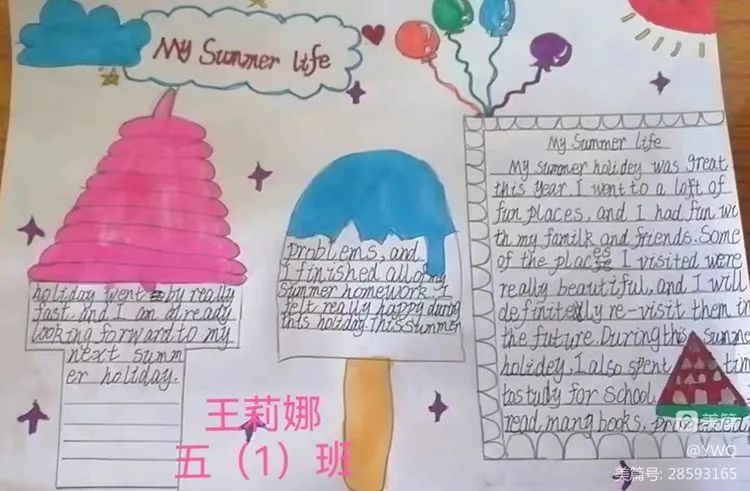 My Summer life
My Summer life
My summer holidey was great
this year. I went to a loft of
fun places, and I had fun wi
th my familk and friends. Some
of the places I visited were
really beautiful, and I will
definitely re-visit them in
the future. During this summer
holidey, I also spent tim
to study for School,
read many books,
problems, and
I finished all of my
Summer homework. I
felt really happy during
this holiday. This summer
holiday went by really
fast. and I am already
looking forward to my
next summ
er holiday.
王莉娜
五（1）班
美篇
@YWQ
美篇号: 28593165